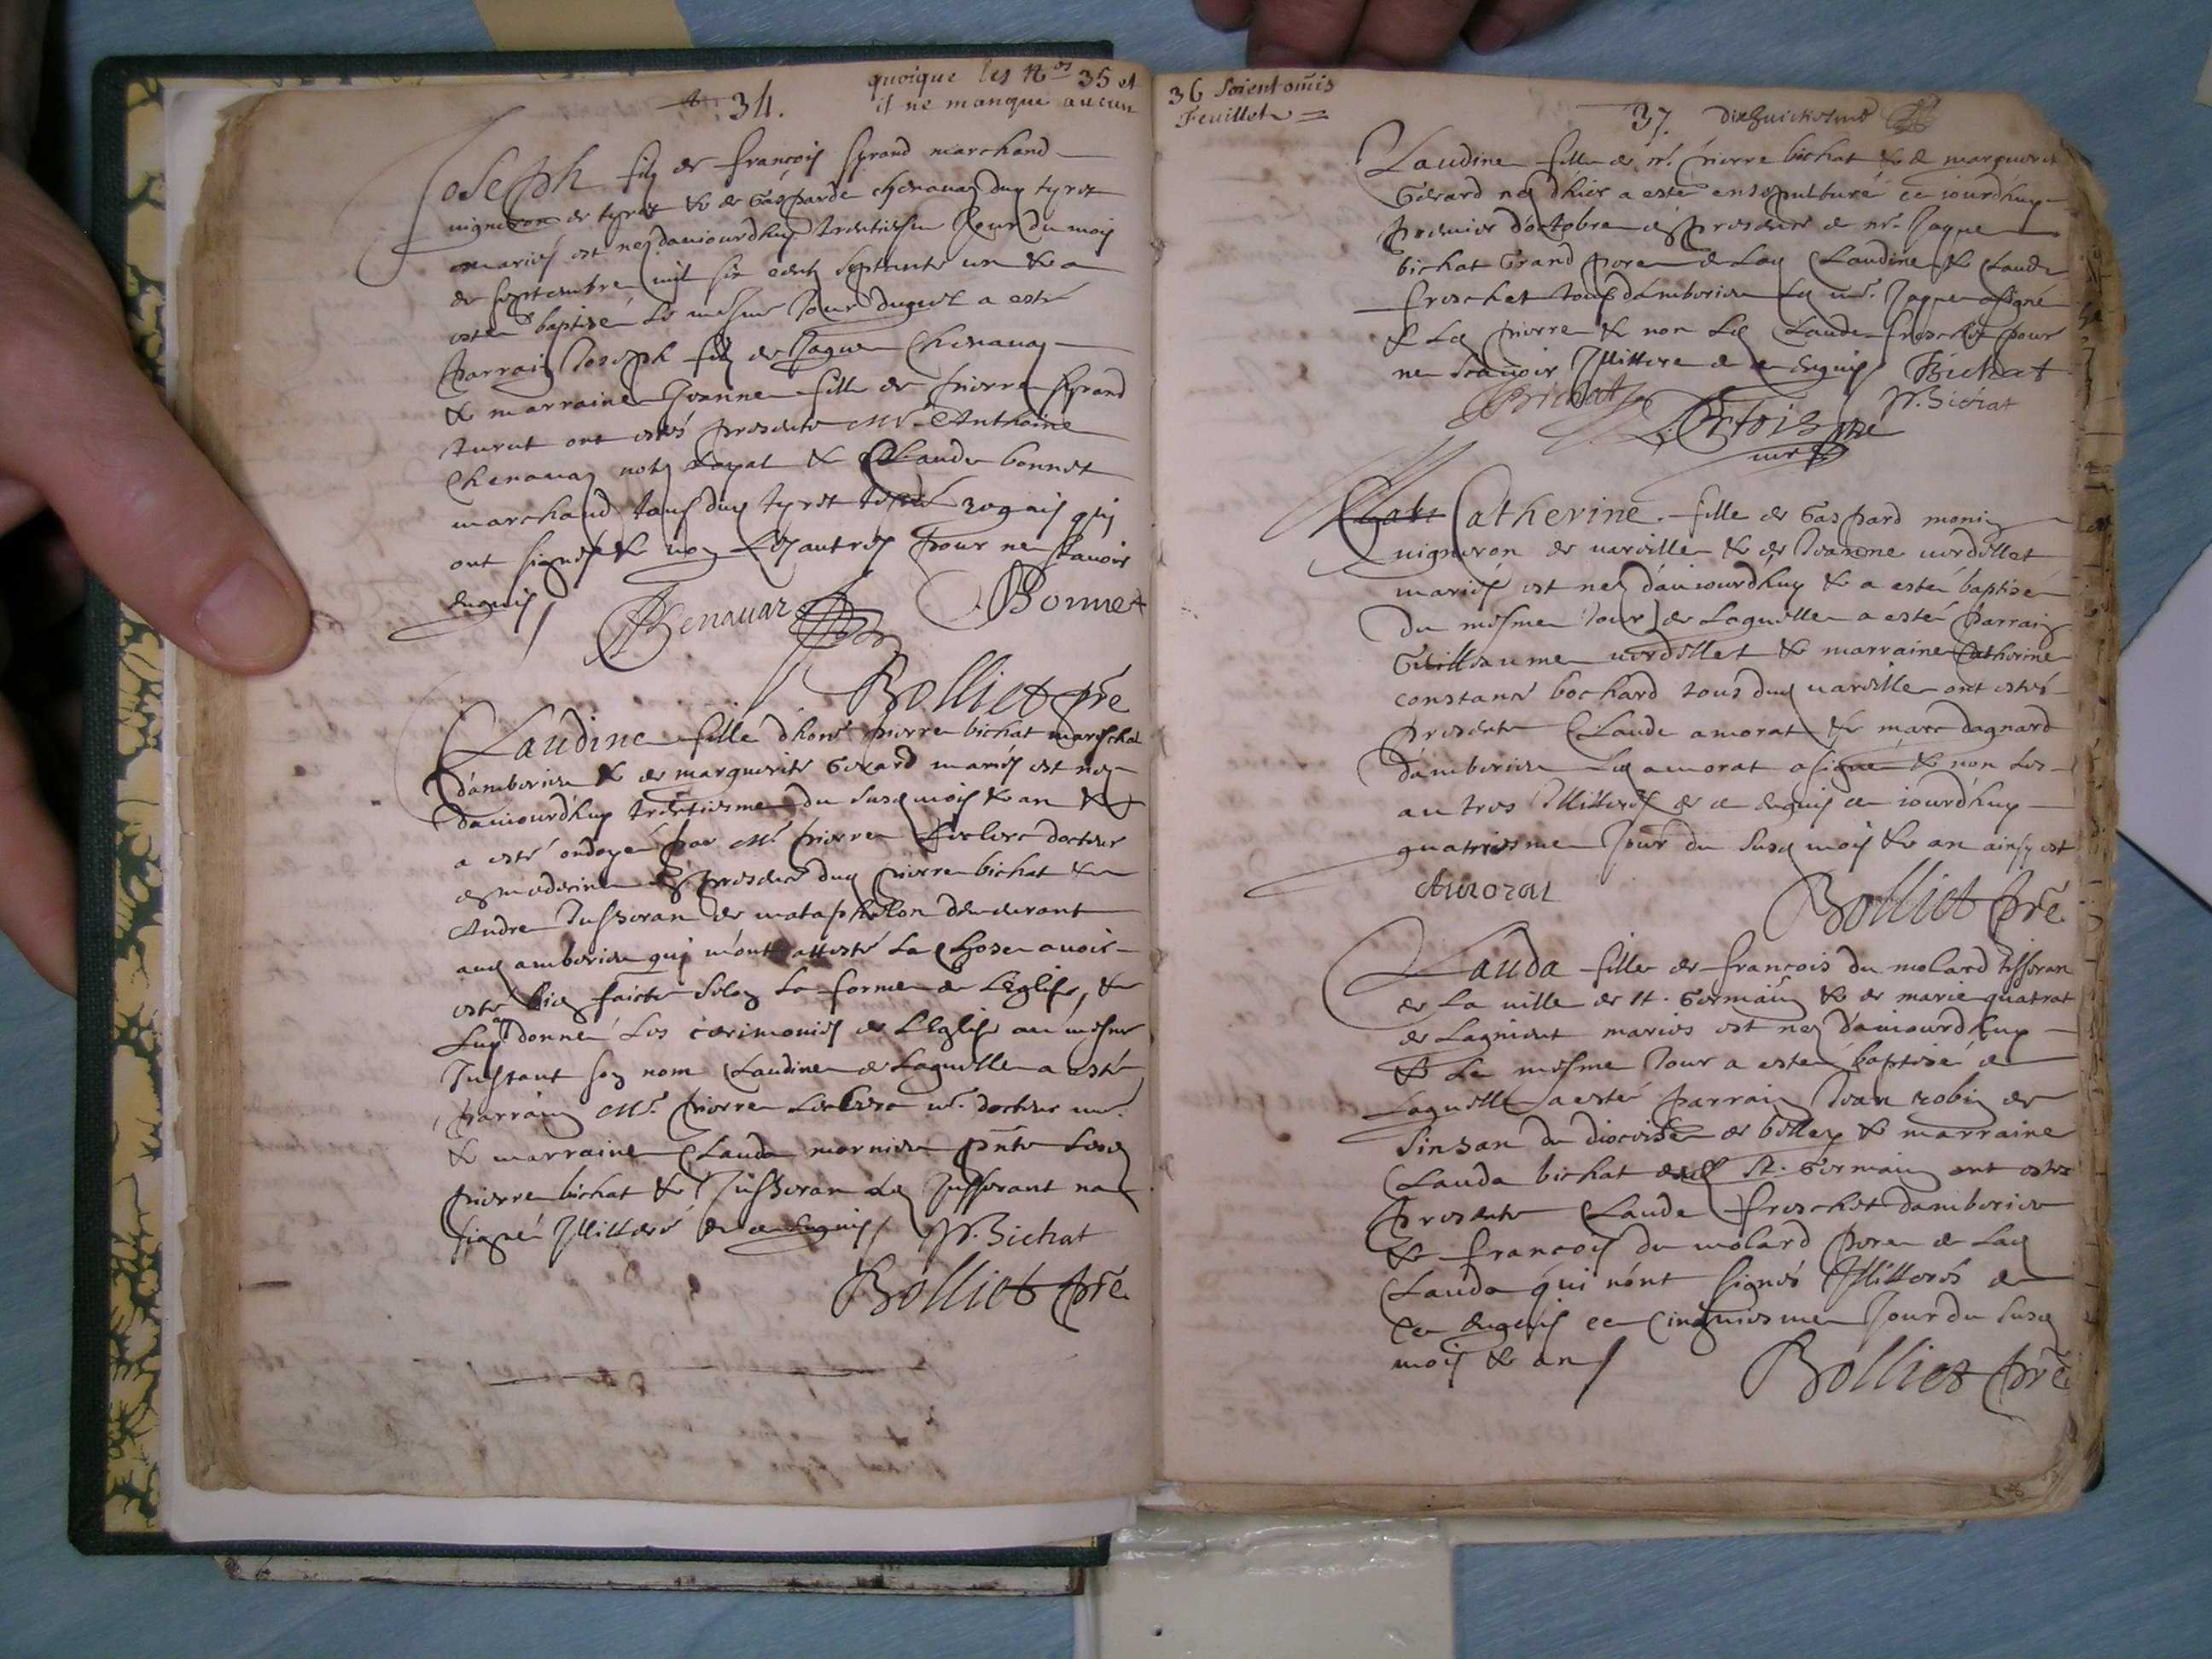 34.
quoique les Nos 35 et
il ne manque aucun
Joseph filz de françois marchand
vigneron de tyret & de Gasparde chenavaz duq tyret
mariés est nez daujourdhuy trentiesme Jour du mois
de septembre mil six cents septante un & a
esté baptisé le mesme Jour duquel a esté
parrain Joseph filz de Jaque Chenavaz
& marraine Jeanne fille de pierre
furent ont estés presents Mr Anthoine
Chenavaz notz Royal & Claude bonnet
marchand tous duq tyret requis qui
ont signés & non les autres pour ne scavoir
enquis
Chenavaz Bonnet
Bolliet pre
Claudine fille dhone pierre bichat mareschal
d'amberieu & de marguerite Gerard mariés est nez
daujourdhuy trentiesme du susq mois & an &
a esté ondoyé par Mr pierre Leclerc docteur
es medecine es presence duq pierre bichat &
Andre Jusseran de mataphelon demeurant
auq amberieu qui m'ont attesté la chose avoir
esté bien faicte selon la forme de L'Eglise, &
luy ay donné les ceremonies de L'Eglise au mesme
Instant son nom Claudine de laquelle a esté
parrain Mr pierre Leclerc docteur
& marraine Clauda mornieu pnts lesq
pierre bichat & Jusseran Lq Jusserant na
signé Illitteré de ce enquis P. Bichat
Bolliet pre
36 soient omis
Feuillet =
37. Dixhuictiesme
Claudine fille de mr. pierre bichat & de marguerit
Gerard nez d'hier a esté ensepulturé ce jourdhuy
premier d'octobre es presence de mr. Jaque
bichat Grand pere de Laq Claudine & Claude
freschet tous damberieu Lq mr. Jaque a signé
& Lq pierre & non Lq Claude freschet pour
ne scavoir Illitteré de ce enquis Bichat
Bichat P. Bichat
pre
vire
Catherine fille de Gaspard monin
vigneron de vareille & de Jeanne verdellet
mariés est nez daujourdhuy & a esté baptisé
du mesme Jour de Laquelle a esté parrain
Guillaume verdellet & marraine Catherine
constance bochard tous duq vareille ont estés
presents Claude amorat & marc dagnard
damberieu Lq amorat a signé & non les
autres Illitterés de ce enquis ce jourdhuy
quatriesme Jour du susq mois & an ainsy est
Amorat
Bolliet pre
Clauda fille de françois du molard tisseran
de La ville de St. Germain & de marie quatrat
de Lagnieu mariés est nez daujourdhuy
& Le mesme Jour a esté baptisé de
Laquelle a esté parrain Jean robin de
Sinsan du diocoise de belley & marraine
Clauda bichat de St. Germain ont estés
presents Claude freschet damberieu
& françois du molard pere de Laq
Clauda qui n'ont signés Illitterés de
ce enquis ce Cinquiesme Jour du susq
mois & an
Bolliet pre